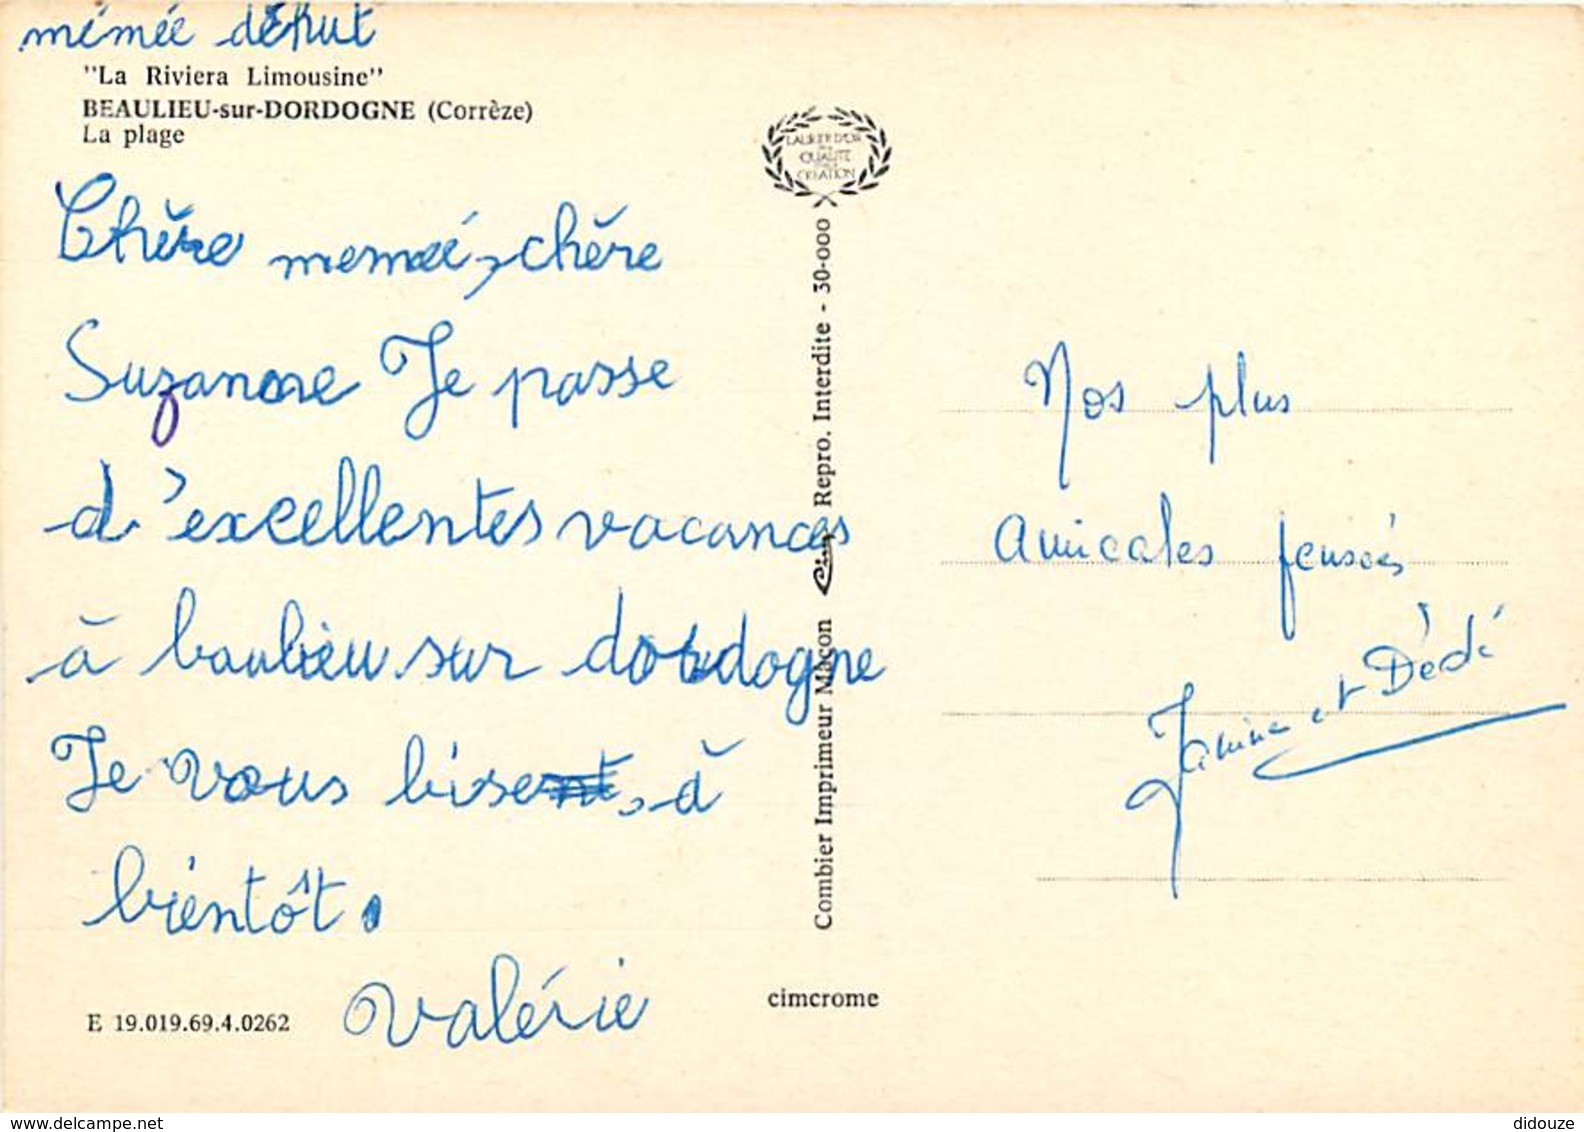 mémée début
"La Riviera Limousine"
BEAULIEU-sur-DORDOGNE (Corrèze)
La plage
Chère memeé, chère
Suzanne Je passe
d'excellentes vacances
à baulieu sur dordogne
Je vous bise, à
bientôt.
Valérie
E 19.019.69.4.0262
LAURIER D'OR
QUALITÉ
CRÉATION
Combier Imprimeur Mâcon Cim Repro. Interdite - 30-000
cimcrome
Nos plus
amicales pensées
Janine et Dédé
didouze